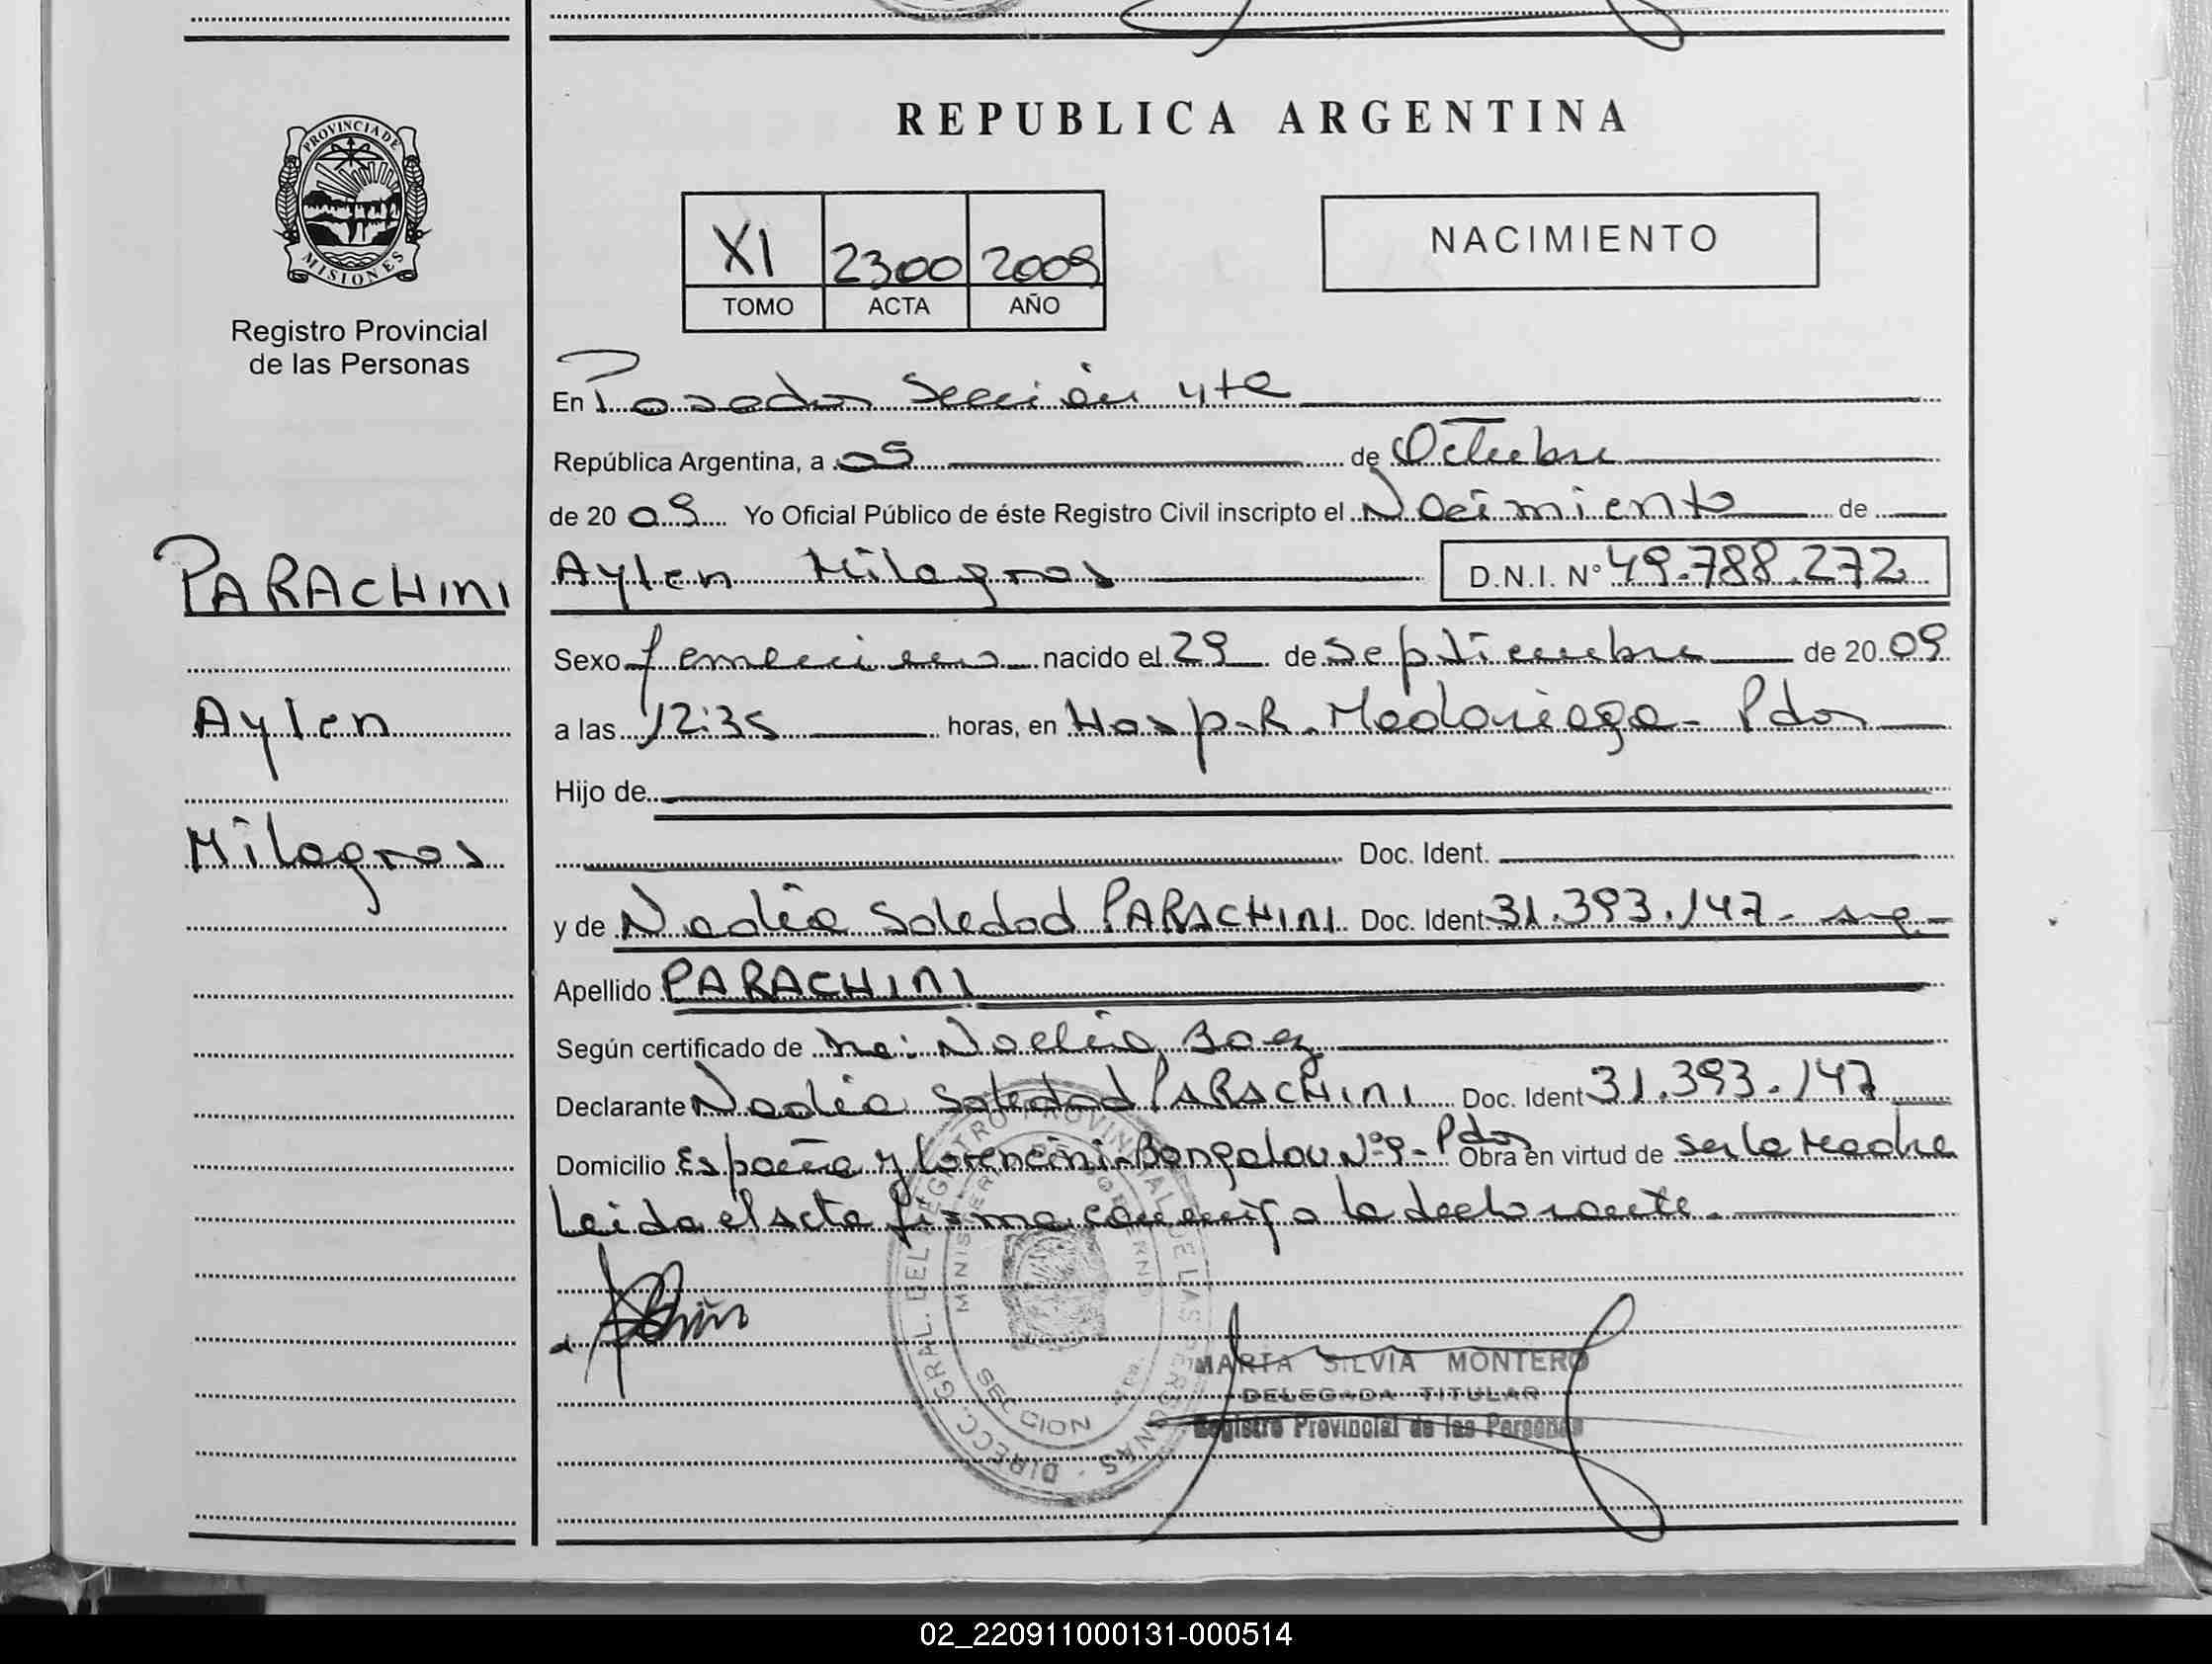 PROVINCIA DE
MISIONES
Registro Provincial
de las Personas
PARACHINI
Aylen
Milagros
REPUBLICA ARGENTINA
XI 2300 2009
TOMO ACTA AÑO
NACIMIENTO
En Posadas Sección 4ta
República Argentina, a 09 de Octubre
de 2009 Yo Oficial Público de éste Registro Civil inscripto el Nacimiento de
Aylen Milagros D.N.I. N° 49.788.272
Sexo femenino nacido el 29 de septiembre de 2009
a las 12:35 horas, en Hosp. R. Madariaga - Pdas
Hijo de
Doc. Ident.
y de Nadia Soledad PARACHINI Doc. Ident. 31.393.147 -
Apellido PARACHINI
Según certificado de Noelia Baez
Declarante Nadia Soledad PARACHINI Doc. Ident 31.393.147
Domicilio España y Lorencini - Bongalou N° 9 - Pdas Obra en virtud de ser la Madre
Leida el acta firma conmigo la declarante.
DIRECC. GRAL. DEL REGISTRO PROVINCIAL DE LAS PERSONAS
SECCION
MARTA SILVIA MONTERO
DELEGADA TITULAR
Registro Provincial de las Personas
02_220911000131-000514